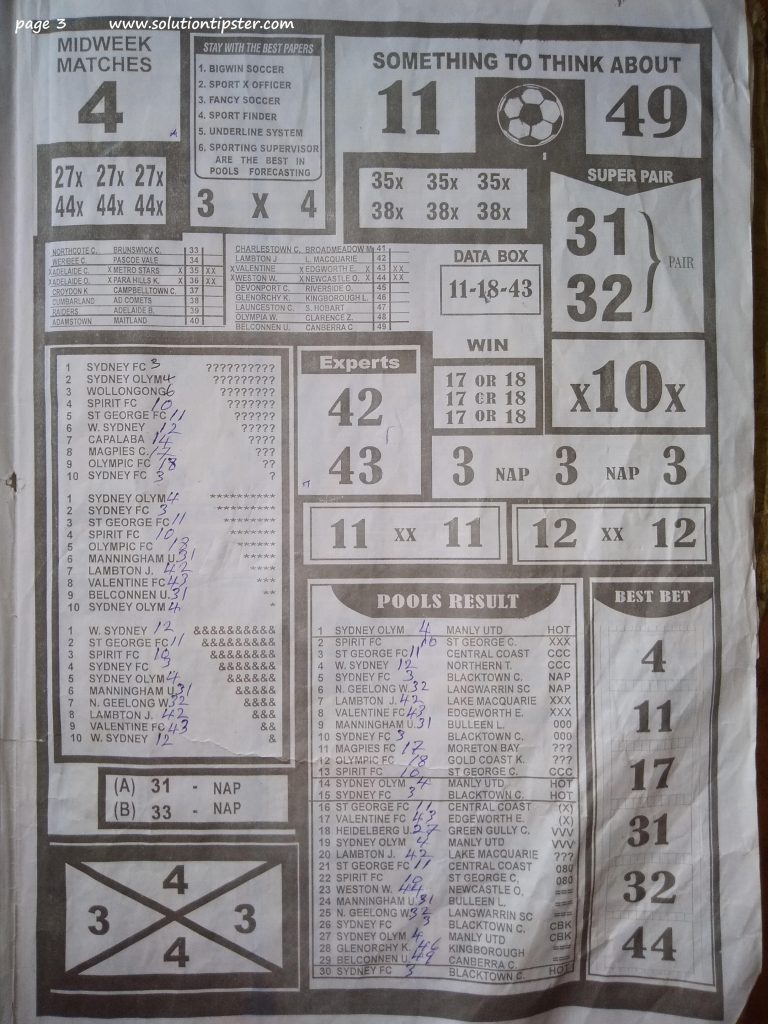 page 3 www.solutiontipster.com
MIDWEEK
MATCHES
4
STAY WITH THE BEST PAPERS
1. BIGWIN SOCCER
2. SPORT X OFFICER
3. FANCY SOCCER
4. SPORT FINDER
5. UNDERLINE SYSTEM
6. SPORTING SUPERVISOR
ARE THE BEST IN
POOLS FORECASTING
3 X 4
SOMETHING TO THINK ABOUT
11 49
27x 27x 27x
44x 44x 44x
35x 35x 35x
38x 38x 38x
SUPER PAIR
31
32
PAIR
NORTHCOTE C. BRUNSWICK C. 33
WERIBEE C. PASCOE VALE 34
XADELAIDE C. X METRO STARS X 35 XX
XADELAIDE O. X PARA HILLS K. X 36 XX
CROYDON K CAMPBELLTOWN C. 37
CUMBARLAND AD COMETS 38
RAIDERS ADELAIDE B. 39
ADAMSTOWN MAITLAND 40
CHARLESTOWN C. BROADMEADOW M 41
LAMBTON J L. MACQUARIE 42
XVALINTINE X EDGWORTH E. X 43 XX
XWESTON W. X NEWCASTLE O. X 44 XX
DEVONPORT C. RIVERSIDE O. 45
GLENORCHY K. KINGBOROUGH L. 46
LAUNCESTON C. S. HOBART 47
OLYMPIA W. CLARENCE Z. 48
BELCONNEN U. CANBERRA C 49
DATA BOX
11-18-43
WIN
17 OR 18
17 OR 18
17 OR 18
x10x
Experts
42
43
3 NAP 3 NAP 3
11 xx 11
12 xx 12
1 SYDNEY FC 3 ??????????
2 SYDNEY OLYM 4 ?????????
3 WOLLONGONG 6 ????????
4 SPIRIT FC 10 ???????
5 ST GEORGE FC 11 ??????
6 W. SYDNEY 12 ?????
7 CAPALABA 14 ????
8 MAGPIES C. 17 ???
9 OLYMPIC FC 18 ??
10 SYDNEY FC 3 ?
1 SYDNEY OLYM 4 **********
2 SYDNEY FC 3 *********
3 ST GEORGE FC 11 ********
4 SPIRIT FC 10 *******
5 OLYMPIC FC 18 ******
6 MANNINGHAM U. 31 *****
7 LAMBTON J. 42 ****
8 VALENTINE FC 43 ***
9 BELCONNEN U. 31 **
10 SYDNEY OLYM 4 *
1 W. SYDNEY 12 &&&&&&&&&&
2 ST GEORGE FC 11 &&&&&&&&&
3 SPIRIT FC 10 &&&&&&&&
4 SYDNEY FC 3 &&&&&&&
5 SYDNEY OLYM 4 &&&&&&
6 MANNINGHAM U 31 &&&&&
7 N. GEELONG W 32 &&&&
8 LAMBTON J. 42 &&&
9 VALENTINE FC 43 &&
10 W. SYDNEY 12 &
(A) 31 - NAP
(B) 33 - NAP
4
3 3
4
POOLS RESULT
1 SYDNEY OLYM 4 MANLY UTD HOT
2 SPIRIT FC 10 ST GEORGE C. XXX
3 ST GEORGE FC 11 CENTRAL COAST CCC
4 W. SYDNEY 12 NORTHERN T. CCC
5 SYDNEY FC 3 BLACKTOWN C. NAP
6 N. GEELONG W. 32 LANGWARRIN SC NAP
7 LAMBTON J. 42 LAKE MACQUARIE XXX
8 VALENTINE FC 43 EDGEWORTH E. XXX
9 MANNINGHAM U. 31 BULLEEN L. 000
10 SYDNEY FC 3 BLACKTOWN C. 000
11 MAGPIES FC 17 MORETON BAY ???
12 OLYMPIC FC 18 GOLD COAST K. ???
13 SPIRIT FC 10 ST GEORGE C. CCC
14 SYDNEY OLYM 4 MANLY UTD HOT
15 SYDNEY FC 3 BLACKTOWN C. HOT
16 ST GEORGE FC 11 CENTRAL COAST (X)
17 VALENTINE FC 43 EDGEWORTH E. (X)
18 HEIDELBERG U. 27 GREEN GULLY C. VVV
19 SYDNEY OLYM 4 MANLY UTD VVV
20 LAMBTON J. 42 LAKE MACQUARIE ???
21 ST GEORGE FC 11 CENTRAL COAST 080
22 SPIRIT FC 10 ST GEORGE C, 080
23 WESTON W. 44 NEWCASTLE O. ===
24 MANNINGHAM U. 31 BULLEEN L. ===
25 N. GEELONG W. 32 LANGWARRIN SC ===
26 SYDNEY FC 3 BLACKTOWN C. CBK
27 SYDNEY OLYM 4 MANLY UTD CBK
28 GLENORCHY K. 46 KINGBOROUGH ===
29 BELCONNEN U. 49 CANBERRA C. ===
30 SYDNEY FC 3 BLACKTOWN C. HOT
BEST BET
4
11
17
31
32
44